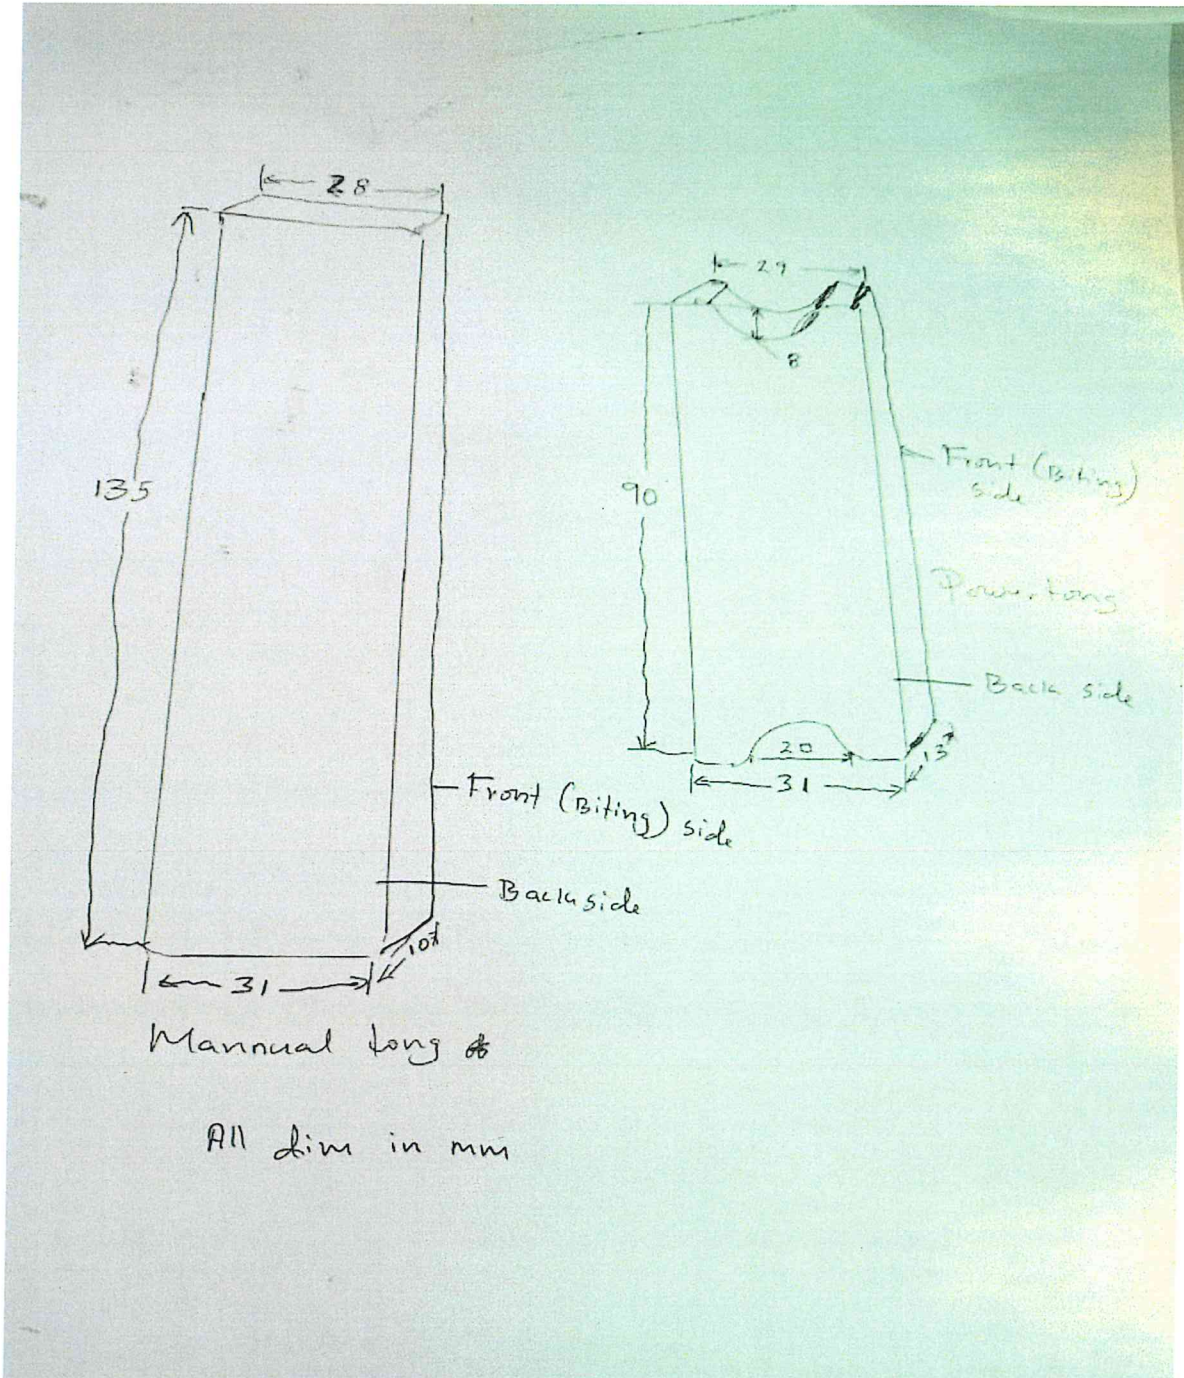 28
135
Front (Biting) side
Back side
31
Mannual tong
All dim in mm
29
8
90
Front (Biting)
side
Back side
20
13
31